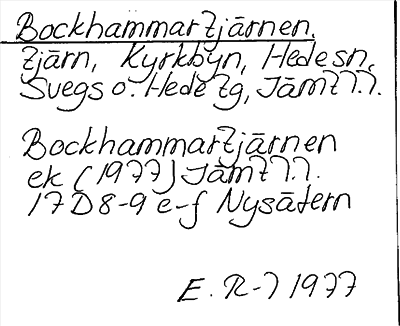 Bockhammartjärnen.
tjärn, Kyrkbyn, Hede sn,
Svegs o. Hede tg, Jämtl.l.
Bockhammartjärnen
ek (1977) Jämtl.l.
17D 8-9 e-f Nysätern
E. R-l 1977